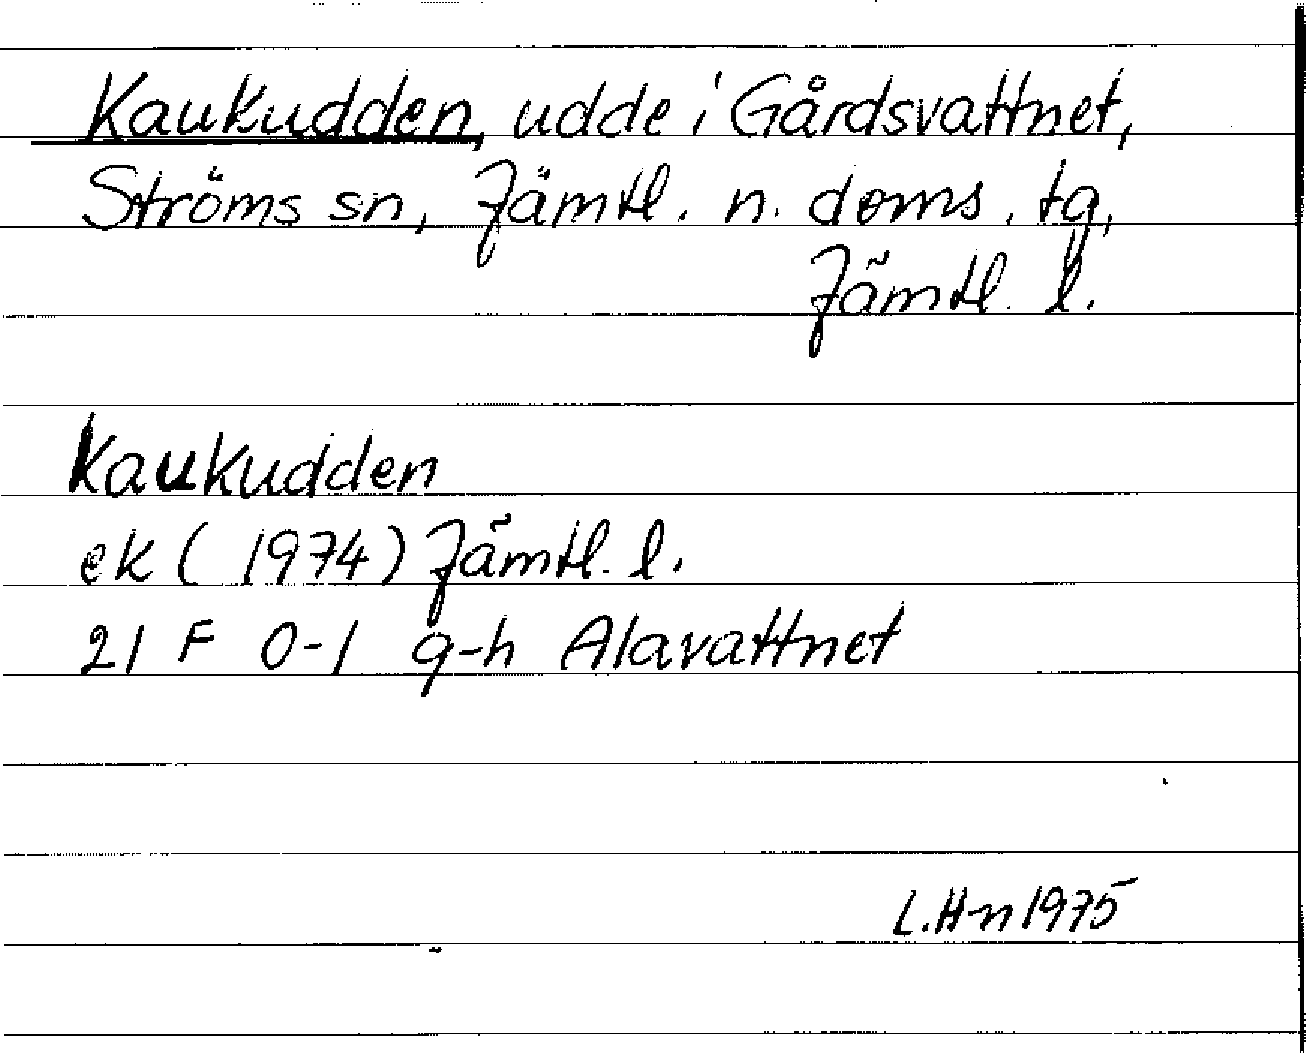 Kaukudden, udde i Gårdsvattnet,
Ströms sn, Jämtl. n. doms. tg,
Jämtl. l.
Kaukudden
ek (1974) Jämtl. l.
21 F 0-1 g-h Alavattnet
L.H-n 1975